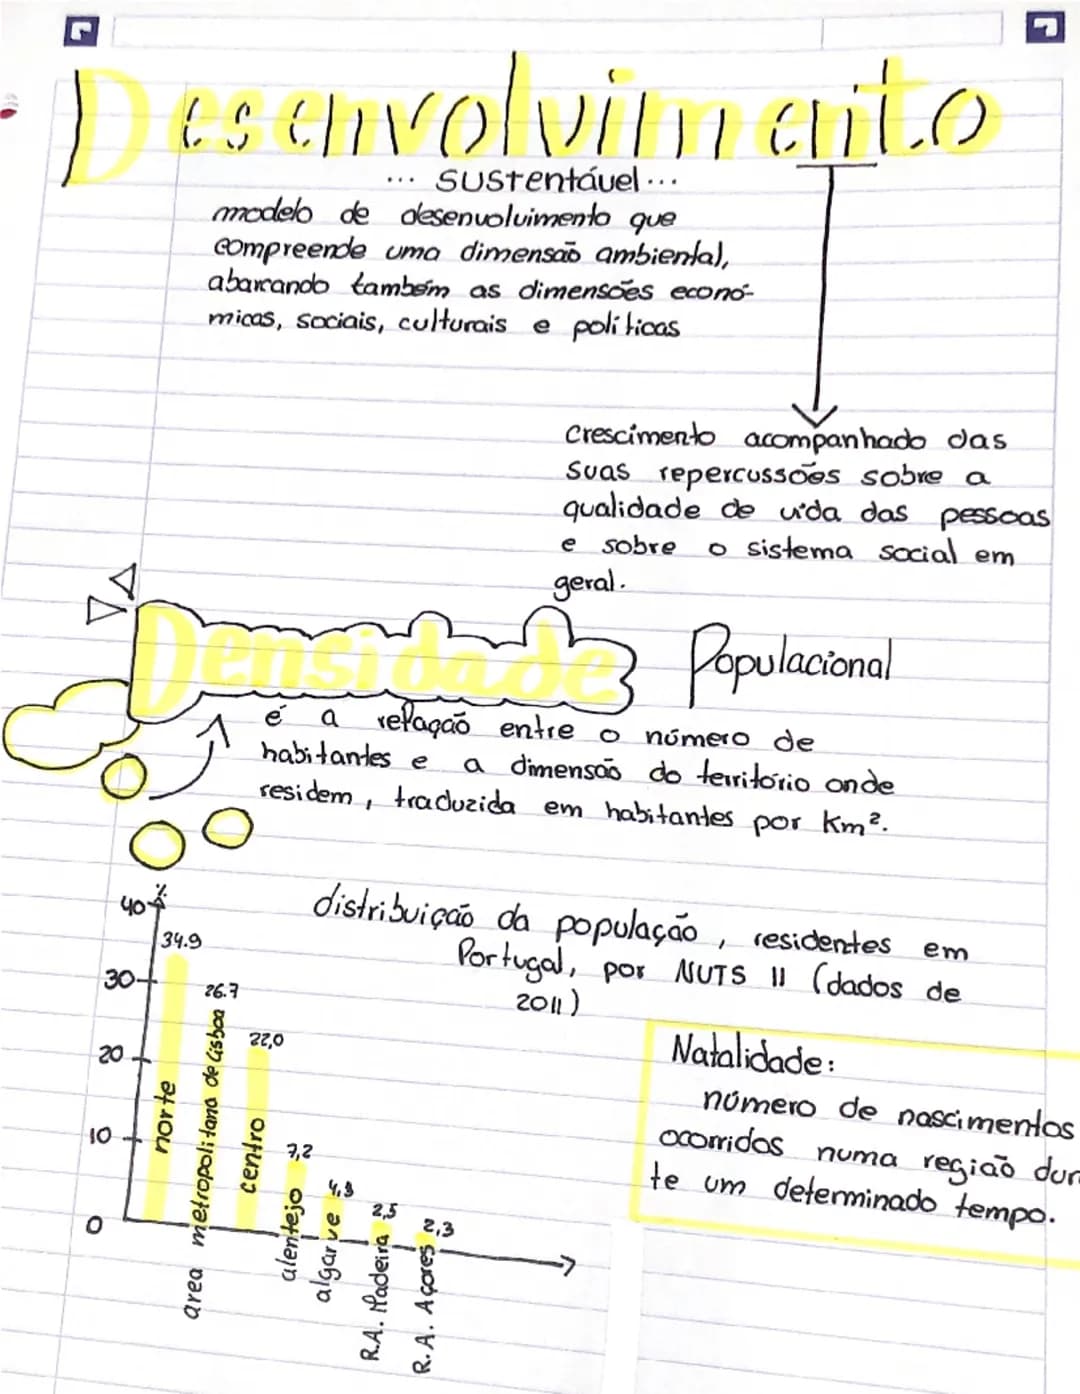 Desenvolvimento
... sustentável ...
modelo de desenvolvimento que
compreende uma dimensão ambiental,
abarcando também as dimensões econó-
micas, sociais, culturais e políticas
crescimento acompanhado das
suas repercussões sobre a
qualidade de vida das pessoas
e sobre o sistema social em
geral.
Densidade Populacional
é a relação entre o número de
habitantes e a dimensão do território onde
residem, traduzida em habitantes por Km².
distribuição da população, residentes em
Portugal, por NUTS II (dados de
2011)
%
40
30
20
10
0
34.9
26.7
22,0
7,2
4,3
2,5
2,3
norte
area metropolitana de Lisboa
centro
alentejo
algarve
R.A. Madeira
R.A. Açores
Natalidade:
número de nascimentos
ocorridos numa região dur
te um determinado tempo.